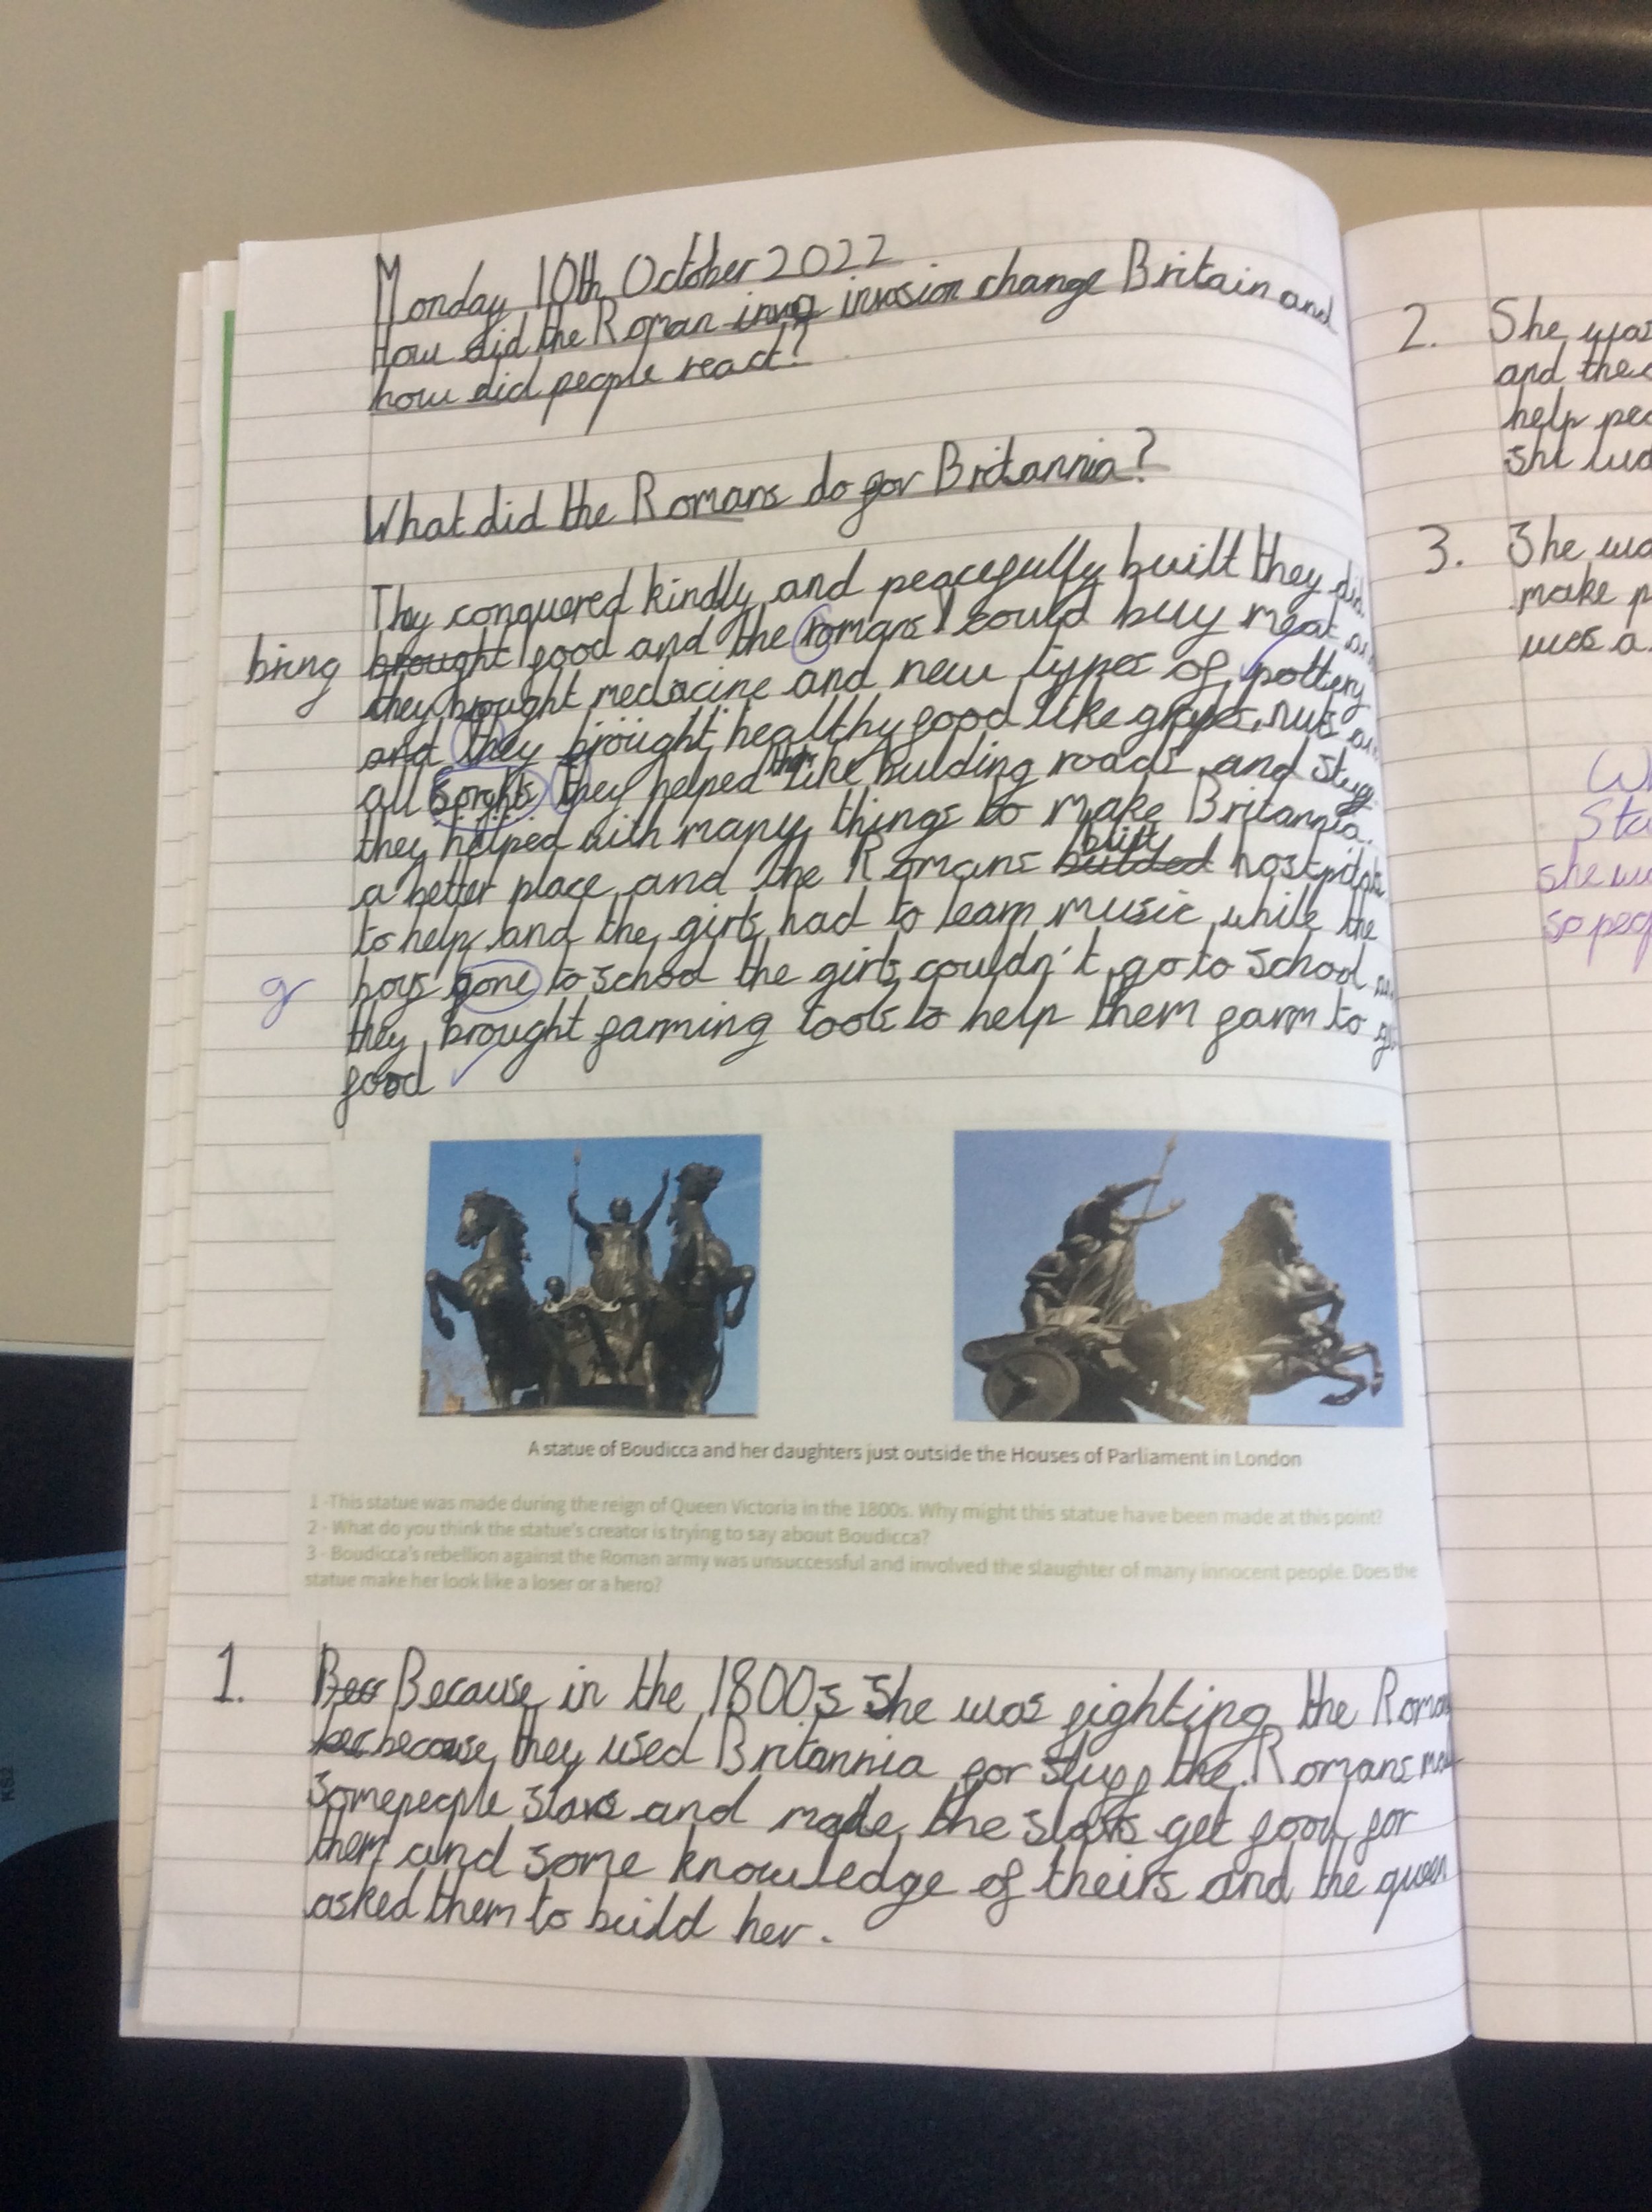 Monday 10th October 2022
How did the Roman inva invasion change Britain and
how did people react?
What did the Romans do for Britannia?
They conquered kindly and peacefully built they
bring brought food and the romans could buy meat
they brought medacine and new types of pottery
and they brought healthy food like grapes, nuts
all they helped like building roads and stuff
they helped with many things to make Britannia
a better place and the Romans builded built hospitals
to help and the girls had to learn music while the
g boys gone to school the girls couldn't go to school
they brought farming tools to help them farm to
food
A statue of Boudicca and her daughters just outside the Houses of Parliament in London
1 - This statue was made during the reign of Queen Victoria in the 1800s. Why might this statue have been made at this point?
2 - What do you think the statue's creator is trying to say about Boudicca?
3 - Boudicca's rebellion against the Roman army was unsuccessful and involved the slaughter of many innocent people. Does the
statue make her look like a loser or a hero?
1. Because in the 1800s she was fighting the
because they used Britannia for stuff the Romans
some people slavs and made the slavs get food for
them and some knowledge of theirs and the queen
asked them to build her.
2. She was
and the
help
3. She
make
was a
KS2